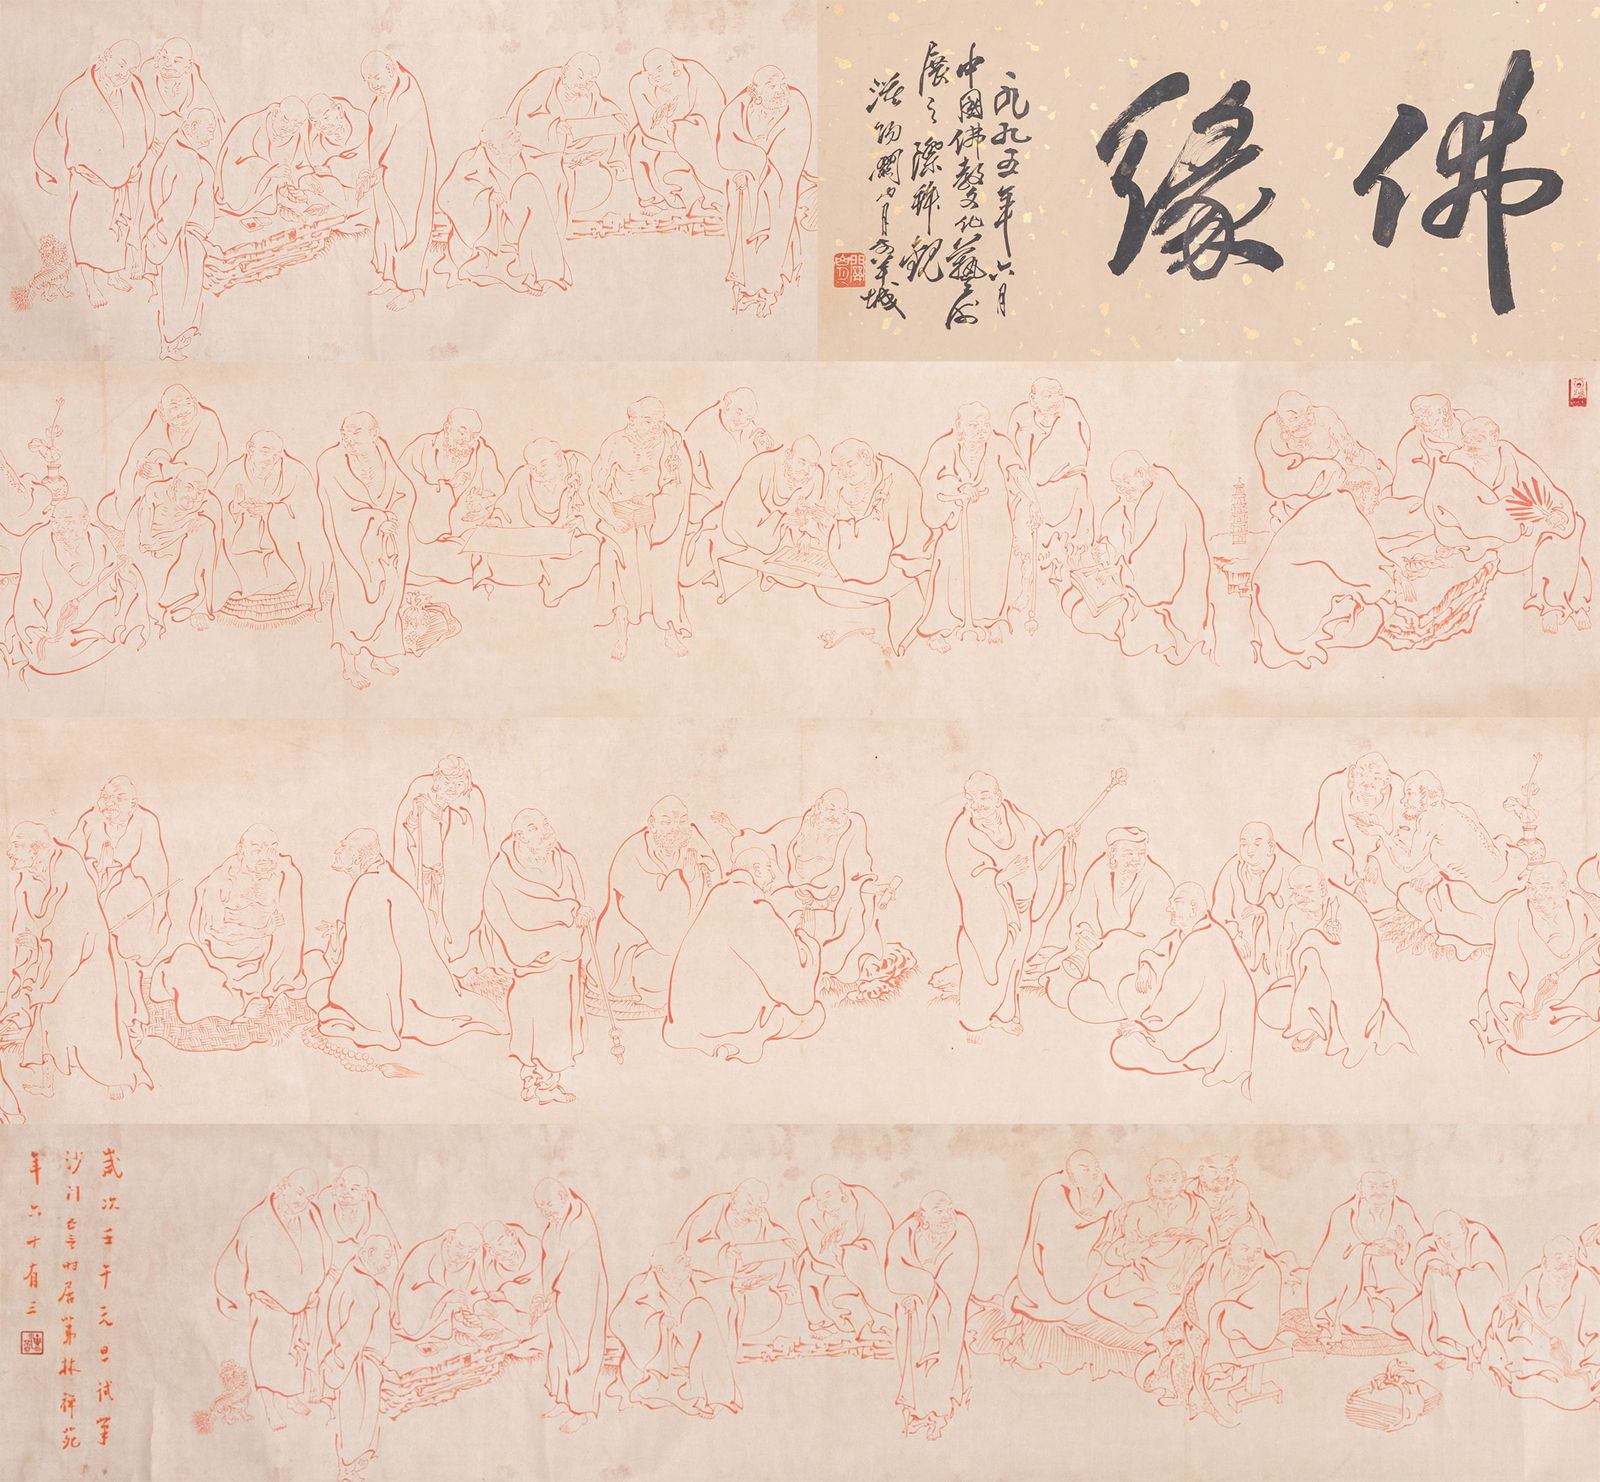 佛緣
一九九五年六月
中國佛教文化藝術
展之際拜觀
漠陽關山月於羊城
歲次壬午元旦試筆
沙门亡言時居林禅苑
年六十有三